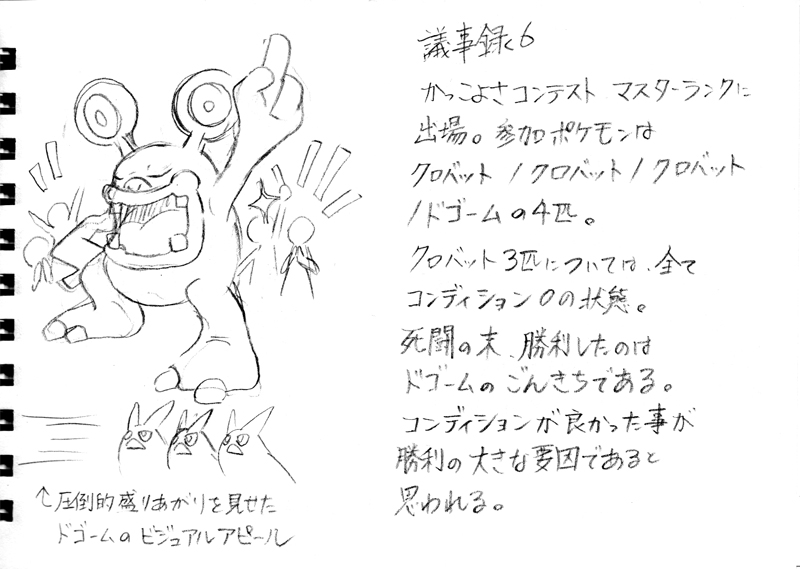 議事録く6
かっこよさコンテスト マスターランクに
出場。参加ポケモンは
クロバット/クロバット/クロバット
/ドゴームの4匹。
クロバット3匹については、全て
コンディション0の状態。
死闘の末、勝利したのは
ドゴームのごんきちである。
コンディションが良かった事が
勝利の大きな要因であると
思われる。
↑圧倒的盛りあがりを見せた
ドゴームのビジュアルアピール